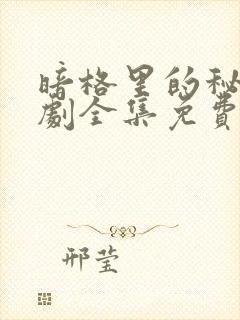 暗格里的秘
劇全集免費
邢莹